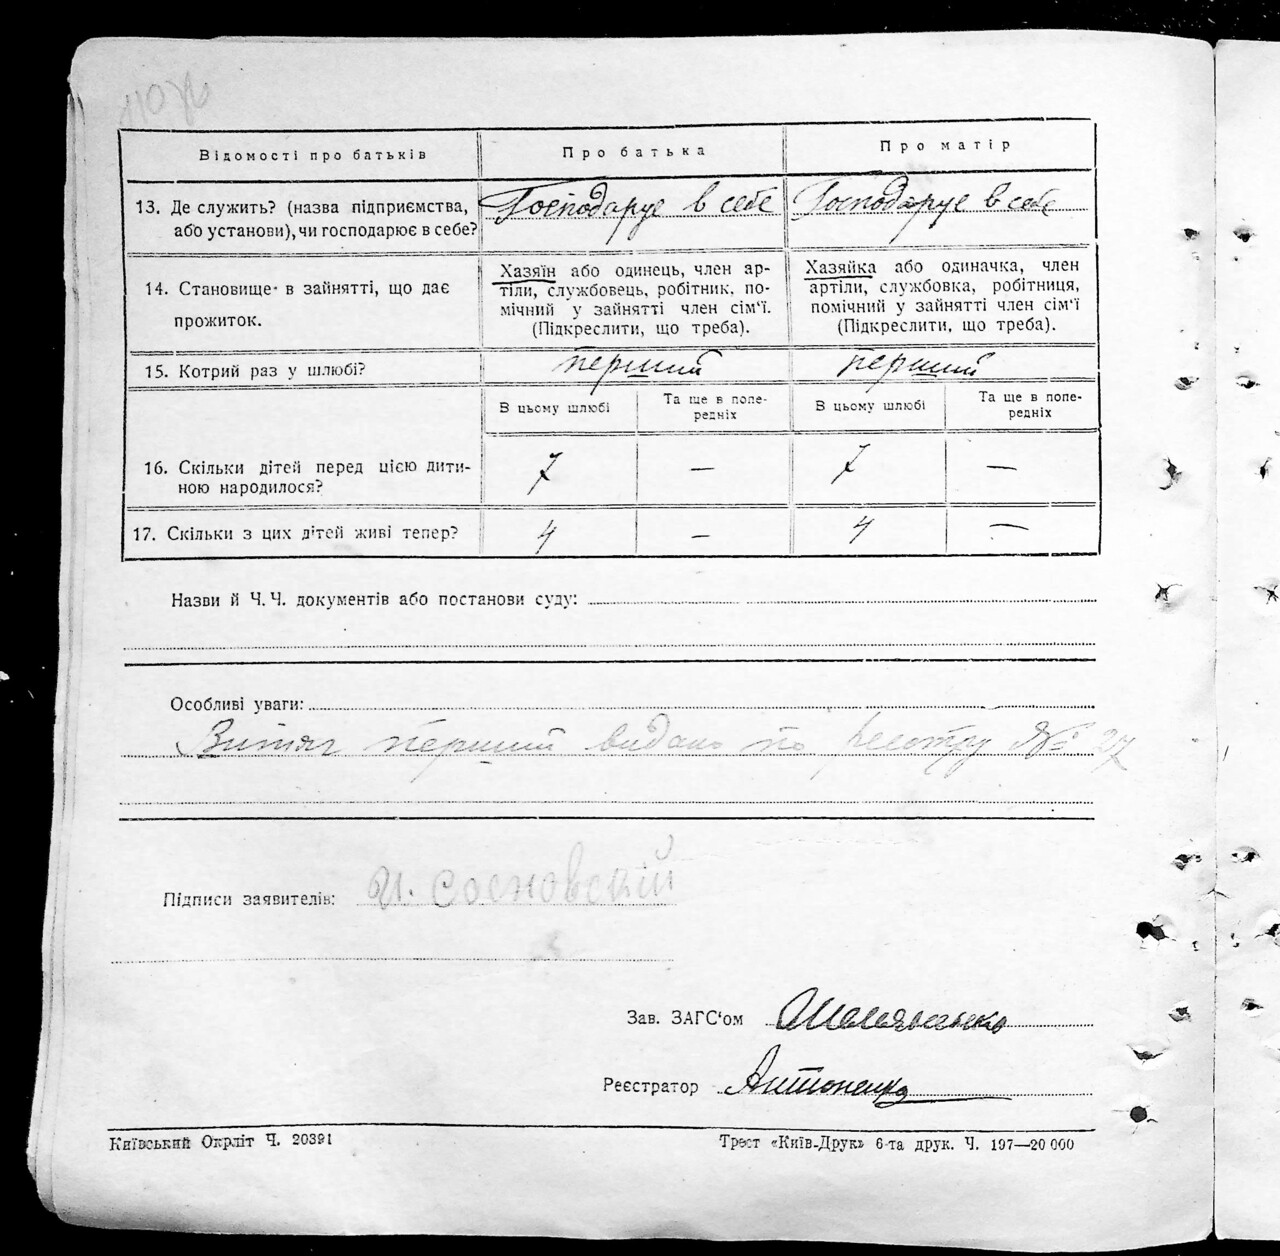 Відомості про батьків
Про батька
Про матір
13. Де служить? (назва підприємства,
або установи), чи господарює в себе?
Господарує в себе
Господарує в себе
14. Становище в зайнятті, що дає
прожиток.
Хазяїн або одинець, член ар-
тіли, службовець, робітник, по-
мічний у зайнятті член сім'ї.
(Підкреслити, що треба).
Хазяйка або одиначка, член
артіли, службовка, робітниця,
помічний у зайнятті член сім'ї
(Підкреслити, що треба).
15. Котрий раз у шлюбі?
перший
перший
В цьому шлюбі
Та ще в попе-
редніх
В цьому шлюбі
Та ще в попе-
редніх
16. Скільки дітей перед цією дити-
ною народилося?
7
—
7
—
17. Скільки з цих дітей живі тепер?
4
—
4
—
Назви й Ч. Ч. документів або постанови суду:
Особливі уваги:
Витяг перший видано по реєстру № 27
Підписи заявителів: И. Сосновский
Зав. ЗАГС'ом
Реєстратор Антоненко
Київський Окрліт Ч. 20391
Трест «Київ-Друк» 6-та друк. Ч. 197—20 000